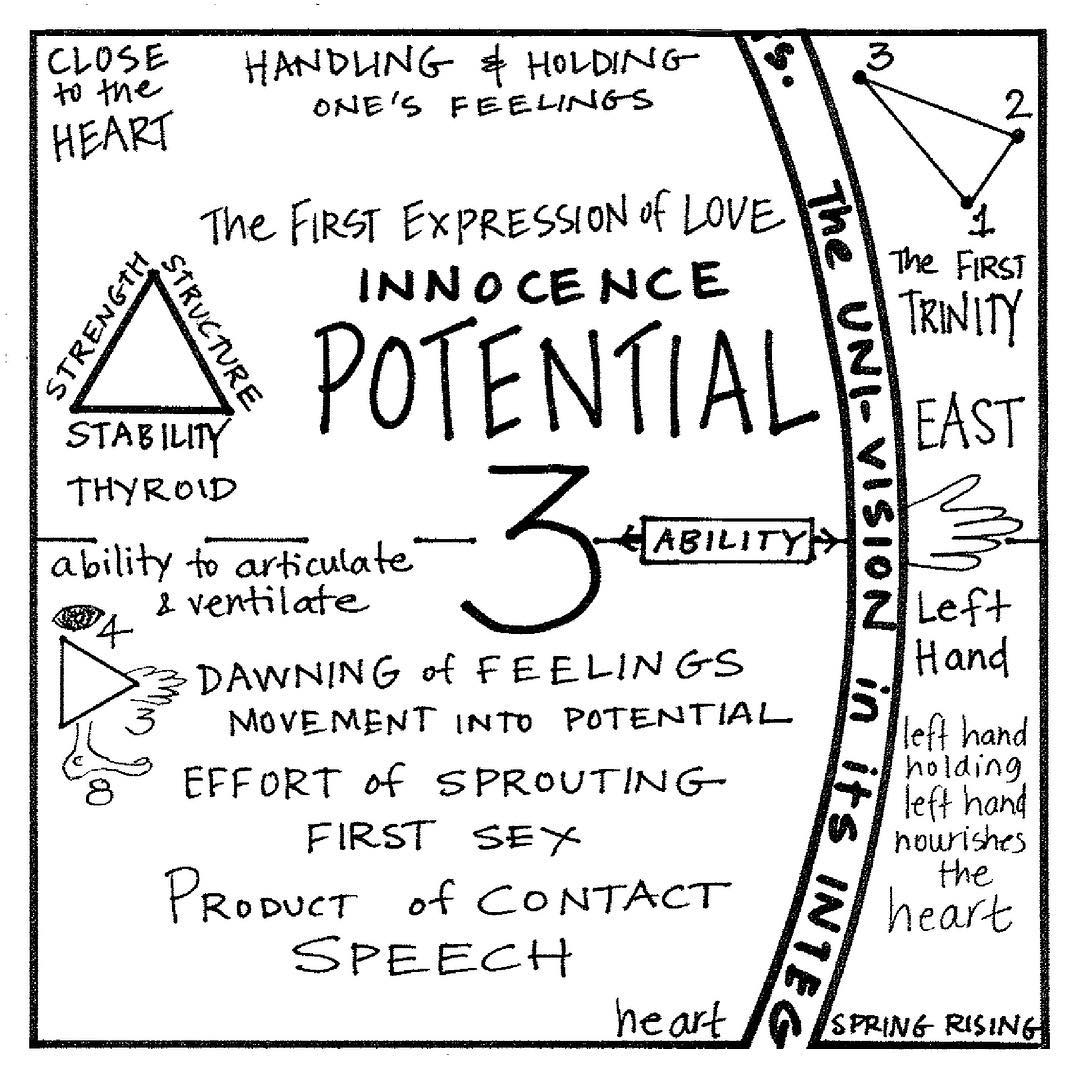 CLOSE
to the
HEART
HANDLING & HOLDING
ONE'S FEELINGS
The FIRST EXPRESSION of LOVE
INNOCENCE
POTENTIAL
STRENGTH
STRUCTURE
STABILITY
THYROID
3
ABILITY
ability to articulate
& ventilate
4
3
8
DAWNING of FEELINGS
MOVEMENT INTO POTENTIAL
EFFORT of SPROUTING
FIRST SEX
PRODUCT of CONTACT
SPEECH
heart
The UNI-VISION in its INTEG
3
2
1
The FIRST
TRINITY
EAST
Left
Hand
left hand
holding
left hand
nourishes
the
heart
SPRING RISING